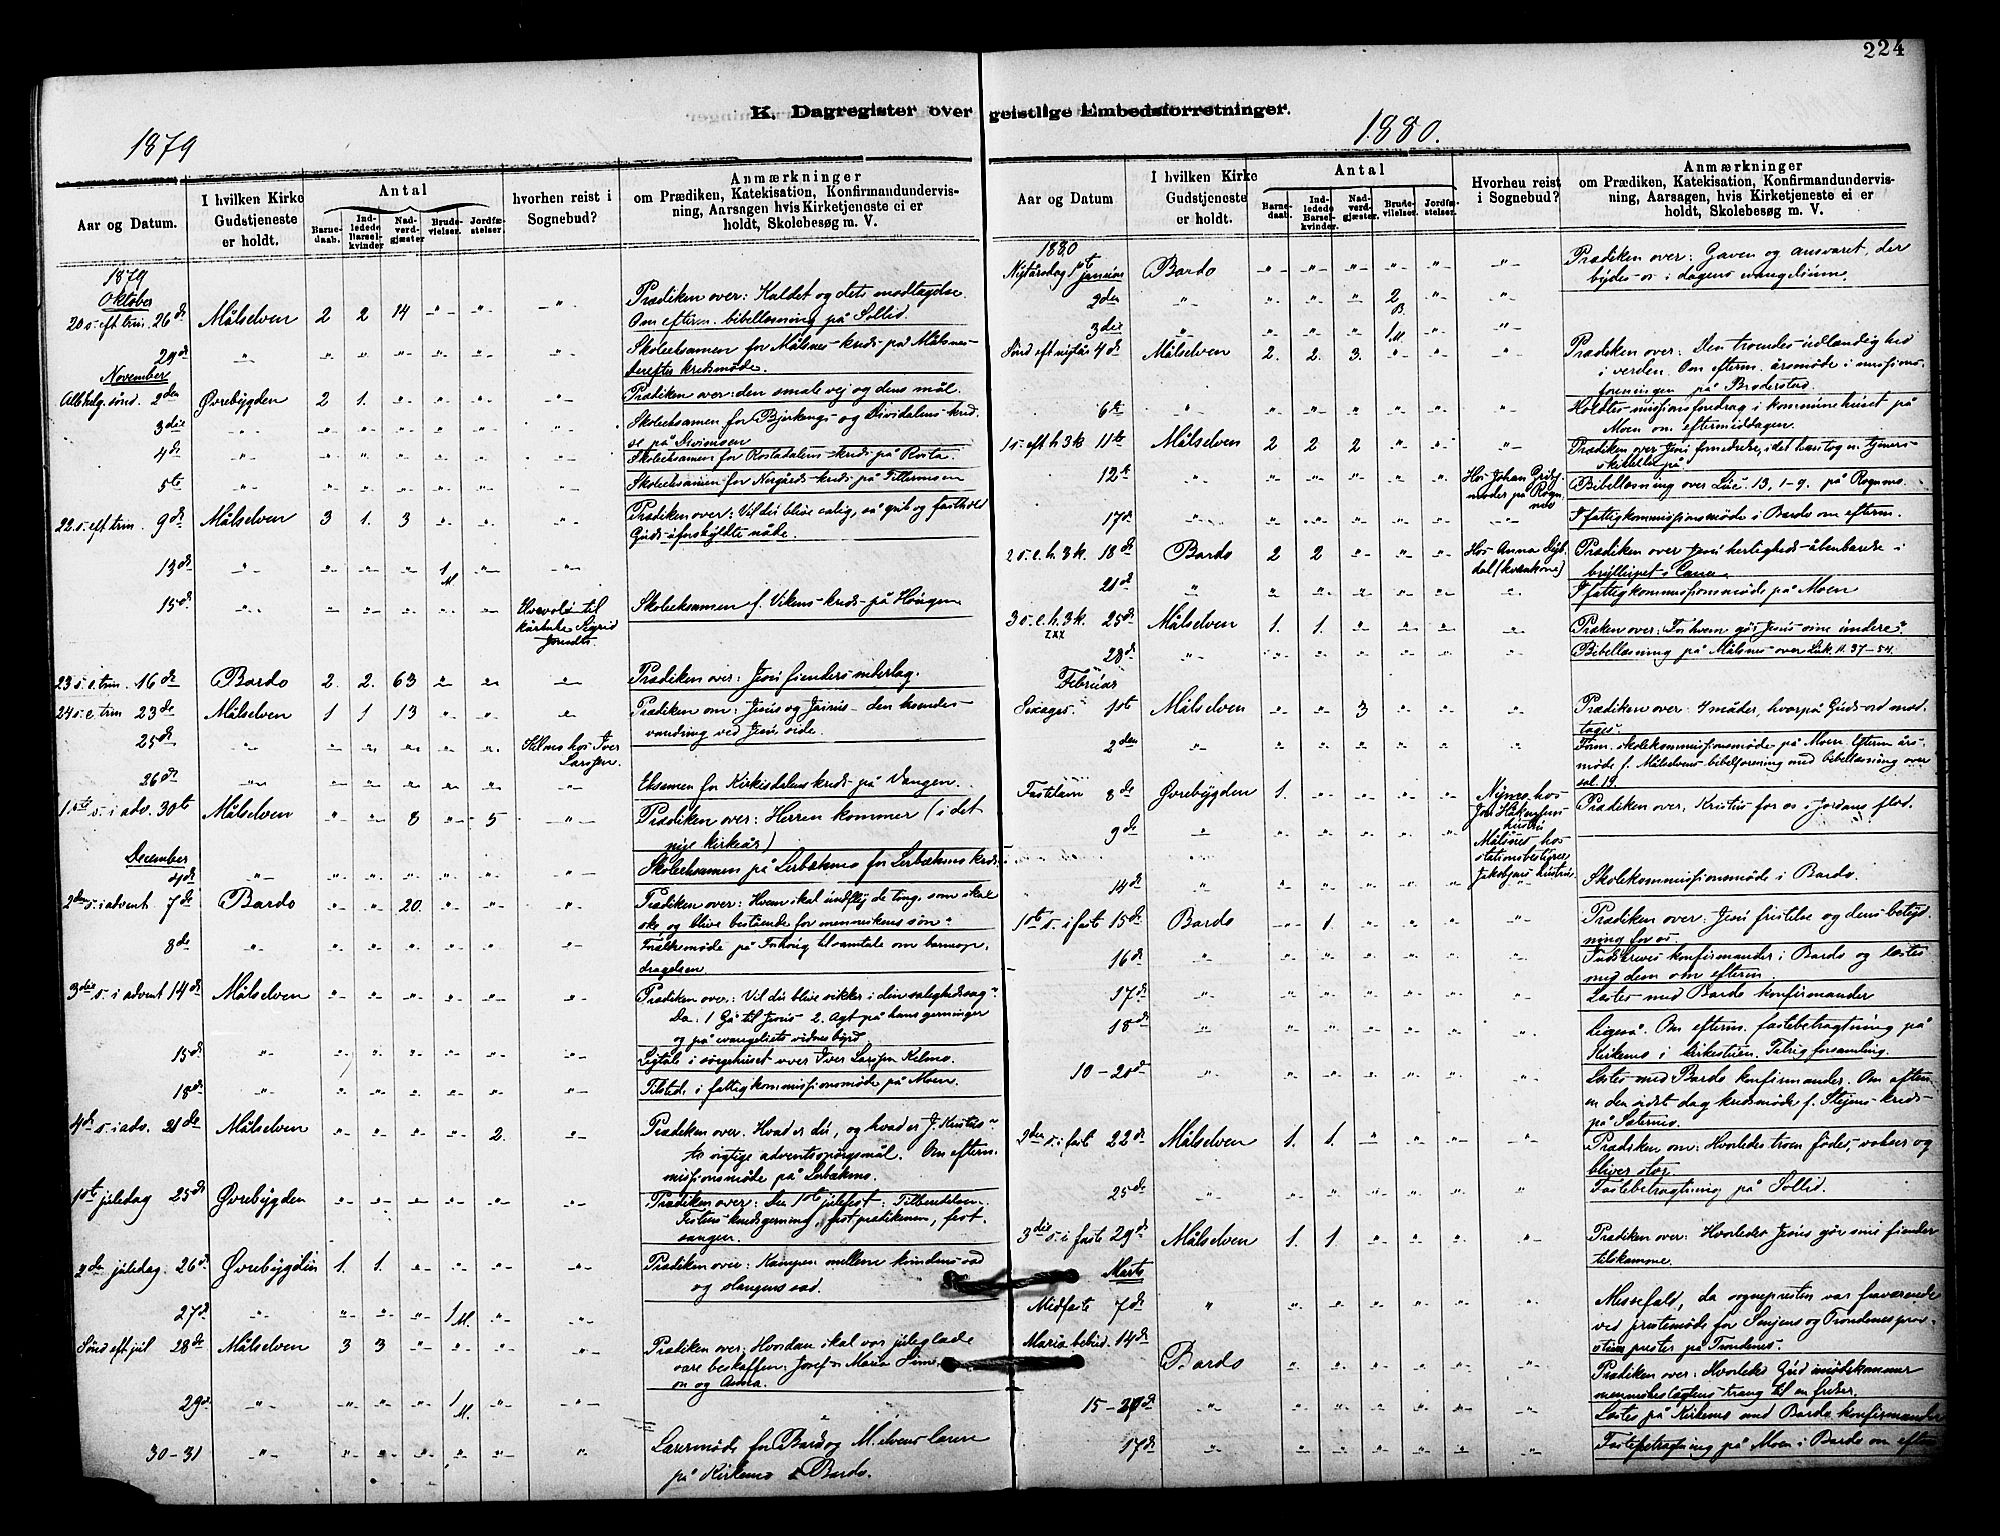 224
K. Dagregister over geistlige Embedsforretninger.
1879
Aar og Datum.
I hvilken Kirke Gudstjeneste er holdt.
Antal
Barnedaab.
Indledede Barselkvinder
Nadverdgjæster
Brudevielser.
Jordfæstelser.
hvorhen reist i Sognebud?
Anmærkninger
om Prædiken, Katekisation, Konfirmandundervisning, Aarsagen hvis Kirketjeneste ei er holdt, Skolebesøg m. V.
1879
Oktober
20 s. eft trin. 26de Målselven 2 2 14 " " " Prædiken over: Kaldet og dets modtagelse.
Om efterm. bibellæsning på Sollid.
29de " " " " " " " Skoleeksamen for Målsnes-kreds på Målsnes-
derefter kredsmøde.
November
Allehelg. sønd. 2den Øvrebygden 2 1. " " " " Prædiken over: den smale vej og dens mål
3die " " " " " " " Skoleeksamen for Bjerkengs- og Dividalens-kred-
se på
4de " " " " " " " Skoleeksamen for Rostadalens-kreds på Rosta.
5te " " " " " " " Skoleeksamen for Nergårds-kreds på
22. s. eft trin. 9de Målselven 3 1. 3 " " " Prædiken over: Vil du blive salig, så grib og fasthold
Guds uforskyldte nåde.
13de " " " " 1 M " "
15de " " " " " " til Sigrid Skoleeksamen f. Vikens-kreds på Haugen
23 s. e. trin. 16de Bardo 2. 2. 63 " " " Prædiken over: Jesu fienders nederlag.
24 s. e. trin 23de Målselven 1 1 13 " " " Prædiken om: Jesus og Jairus- den
vandring ved Jesu side.
25de " " " " " " Kelmo hos Iver Larssen.
26de " " " " " " " Eksamen for Kirkesdalens kreds på Vangen.
1ste s. i adv. 30te Målselven " " 8 " 5 " Prædiken over: Herren kommer (i det
nye kirkeår)
December
4de " " " " " " " Skoleeksamen på Lerbækmo for Lerbækmo kreds
2den s. i advent 7de Bardo " " 20. " " " Prædiken over: Hvem skal undfly de ting, som skal
ske og blive bestående for menneskens søn
8de " " " " " " " på til samtale om barneop-
dragelsen
3die s. i advent 14de Målselven " " " " " " Prædiken over: Vil du blive sikker i din saligheds sag
Da: 1 Gå til Jesus 2. Agt på hans gerninger
og på evangeliets vidnesbyrd
15de " " " " " " " Ligtale i sørgehuset over Iver Larssen Kelmo.
18de " " " " " " " Tilsted. i fattigkommissionsmøde på Moen.
4de s. i adv. 21de Målselven " " " " 2. " Prædiken over. Hvad er du, og hvad er J. Kristus
to vigtige adventsspørgsmål. Om efterm.
missionsmøde på Lerbækmo.
1ste juledag 25de Øvrebygden " " " " " " Prædiken over: Den 1ste julefest: Tilberedelsen.
Festens festprædikenen, fest-
sangen.
2den juledag. 26de Øvrebygden 1. 1. " " " " Prædiken over: Kampen mellem kvindens sæd
og slangens sæd.
27de " " " " 1 M. " "
Sønd eft jul 28de Målselven 3 3 " " " " Prædiken over: Hvordan skal vor juleglæde
være beskaffen: Josef & Maria Sime-
on og Anna.
29de " " " " 1 M. " "
30-31 " " " " " " " Lærermøde for Bardo og M.elvens lærere
på Kirkemo i Bardo.
1880.
Aar og Datum
I hvilken Kirke Gudstjeneste er holdt.
Antal
Barnedaab.
Indledede Barselkvinder.
Nadverdgjæster.
Brudevielser.
Jordfæstelser.
Hvorheu reist i Sognebud?
Anmærkninger
om Prædiken, Katekisation, Konfirmandundervisning, Aarsagen, hvis Kirketjeneste ei er holdt, Skolebesøg m. V.
1880
Nytårsdag 1ste januar Bardo " " " " " " Prædiken over: Gaven og ansvaret, der
bydes os i dagens evangelium.
2den " " " " 2 B. " "
3die " " " " 1 M. " "
Sønd eft nytår 4de Målselven 2. 2. 3. " " " Prædiken over: Den troendes udlændighed
i verden. Om efterm. årsmøde i missions-
foreningen på Brodersted
6te " " " " " " " Holdtes missionsforedrag i kommunehuset på
Moen om eftermiddagen.
1 s. eft h. 3 k. 11te Målselven 2 2 2 " " " Prædiken over Jesu fornedrelse, idet han tog en tjeners-
skikkelse på
12te " " " " " " Hos Johan på Bibellæsning over Luc. 13, 1-9. på Rognmo.
17de " " " " " " " I fattigkommissionsmøde i Bardo om efterm.
2 s. e. h. 3 k. 18de Bardo 2 2 " " " Hos Anna Prædiken over Jesu herligheds-åbenbarelse i
bryllupet i Cana
21de " " " " " " " I fattigkommissionsmøde på Moen
3 s. e. h. 3 k. 25de Målselven 1. 1. " " " " Præken over: For hvem gör Jesus sine undere?
28de " " " " " " " Bibellæsning på Målsnes over Luk. 11. 37-54.
Februar
Sexages. 1ste Målselven " " 3 " " " Prædiken over: 4 måder, hvorpå Guds ord mod-
tages.
2den " " " " " " " Form. skolekommissionsmøde på Moen. Efterm års-
møde f. Målselvens bibelforening med bibellæsning over
sal. 19.
Fastelavn 8de Øvrebygden 1. " " " " hos Prædiken over: Kristus for os i Jordans flod.
9de " " " " " " Målsnes hos stationsbestyrer Jakobsens hustru
14de " " " " " " " Skolekommissionsmøde i Bardo.
1ste s. i fast. 15de Bardo " 1. " " " " Prædiken over: Jesu fristelse og dens betyd-
ning for os.
16de " " " " " " " Indskreves konfirmander i Bardo og læstes
med dem om efterm.
17de " " " " " " " Læstes med Bardo konfirmander
18de " " " " " " " Ligeså. Om efterm. fastebetragtning på
Kirkemo i kirkestuen. Talrig forsamling.
10-20de " " " " " " " Læstes med Bardo konfirmander. Om efterm.
en den sidst dag kredsmøde f. Stejens-kreds-
på Sætermo.
2den s. i fast 22de Målselven 1. 1. " " " " Prædiken om: Hvorledes troen fødes, vokser og
bliver stor
25de " " " " " " " Fastebetragtning på Sollid.
3die s. i faste 29de Målselven 1. 1 " " " " Prædiken over: Hvorledes Jesus gör sine fiender
tilskamme.
Marts
Midfaste 7de " " " " " " " Messefald, da sognepresten var fraværende
ved prestemøde for Senjens og Trondenes prov-
stiers prester på Trondenes.
Maria bebud. 14de Bardo " " " " " " Prædiken over: Hvorledes Gud imødekommer
menneskeslægtens trang til en frelser.
15-20de " " " " " " " Læstes på Kirkemo med Bardo konfirmander
17de " " " " " " " Fastebetragtning på Moen i Bardo om efterm